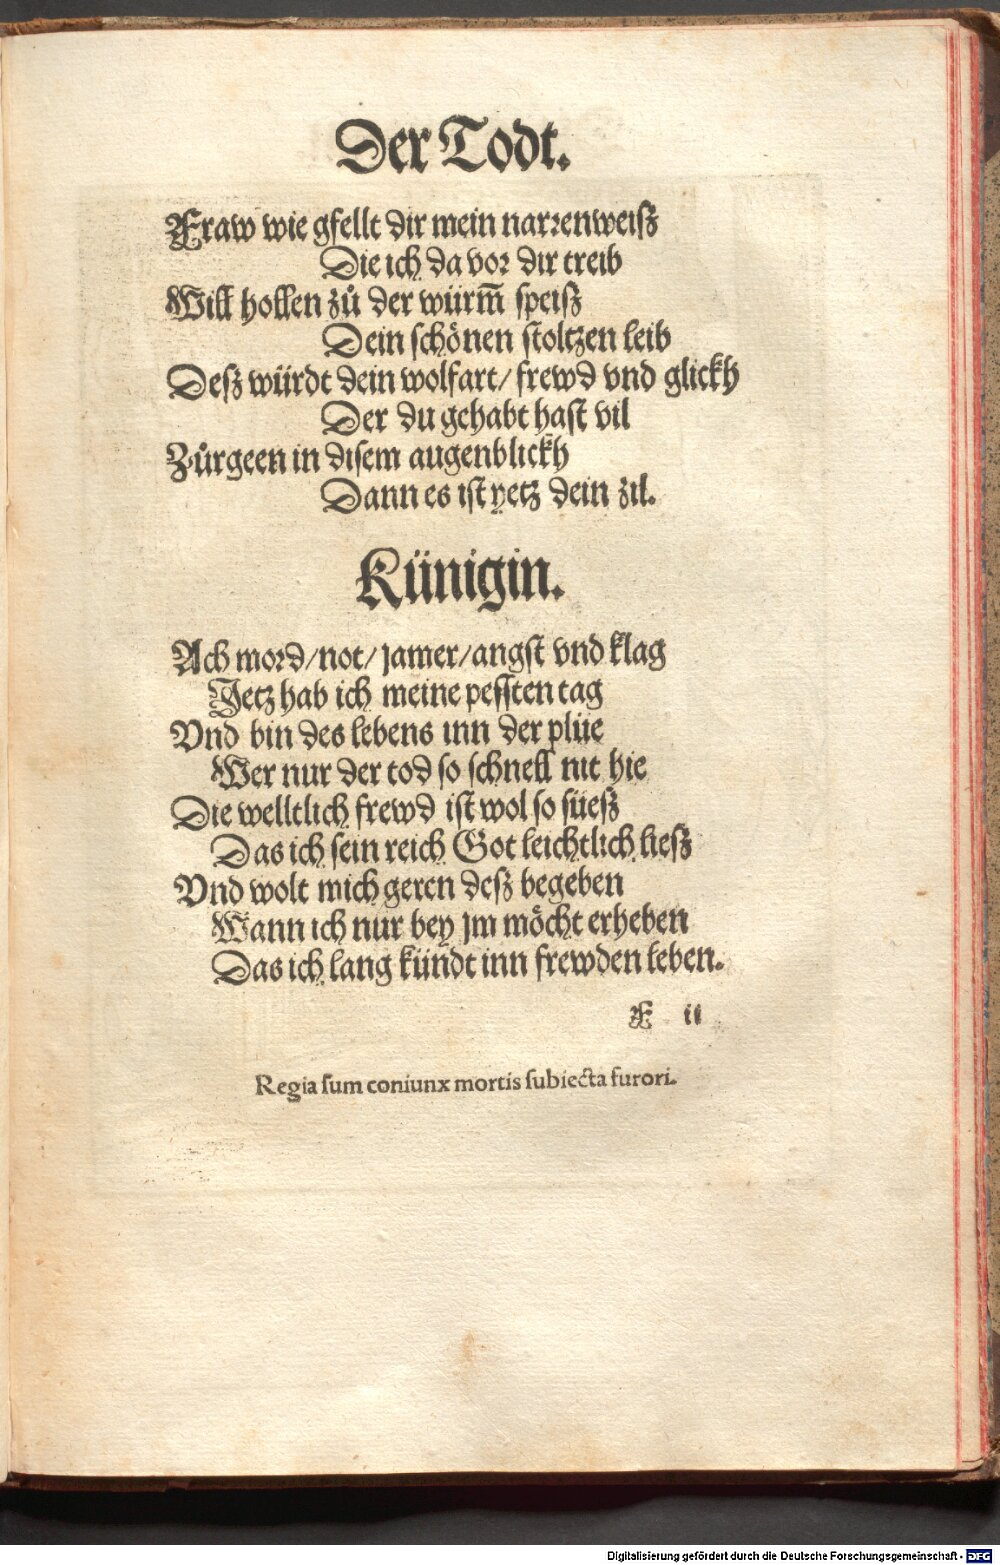 Der Todt.
Fraw wie gfellt dir mein narrenweiſz
Die ich da vor dir treib
Will hollen zů der würm̄ ſpeiſz
Dein ſchönen ſtoltzen leib
Deſz würdt dein wolfart/ frewd vnd glickh
Der du gehabt haſt vil
Zůrgeen in diſem augenblickh
Dann es iſt yetz dein zil.
Künigin.
Ach mord/not/ jamer/angſt vnd klag
Jetz hab ich meine peſſten tag
Vnd bin des lebens inn der plüe
Wer nur der tod ſo ſchnell nit hie
Die welltlich frewd iſt wol ſo ſüeſz
Das ich ſein reich Got leichtlich lieſz
Vnd wolt mich geren deſz begeben
Wann ich nur bey jm möcht erheben
Das ich lang kündt inn frewden leben.
F ii
Regia ſum coniunx mortis ſubiecta furori.
Digitalisierung gefördert durch die Deutsche Forschungsgemeinschaft - DFG